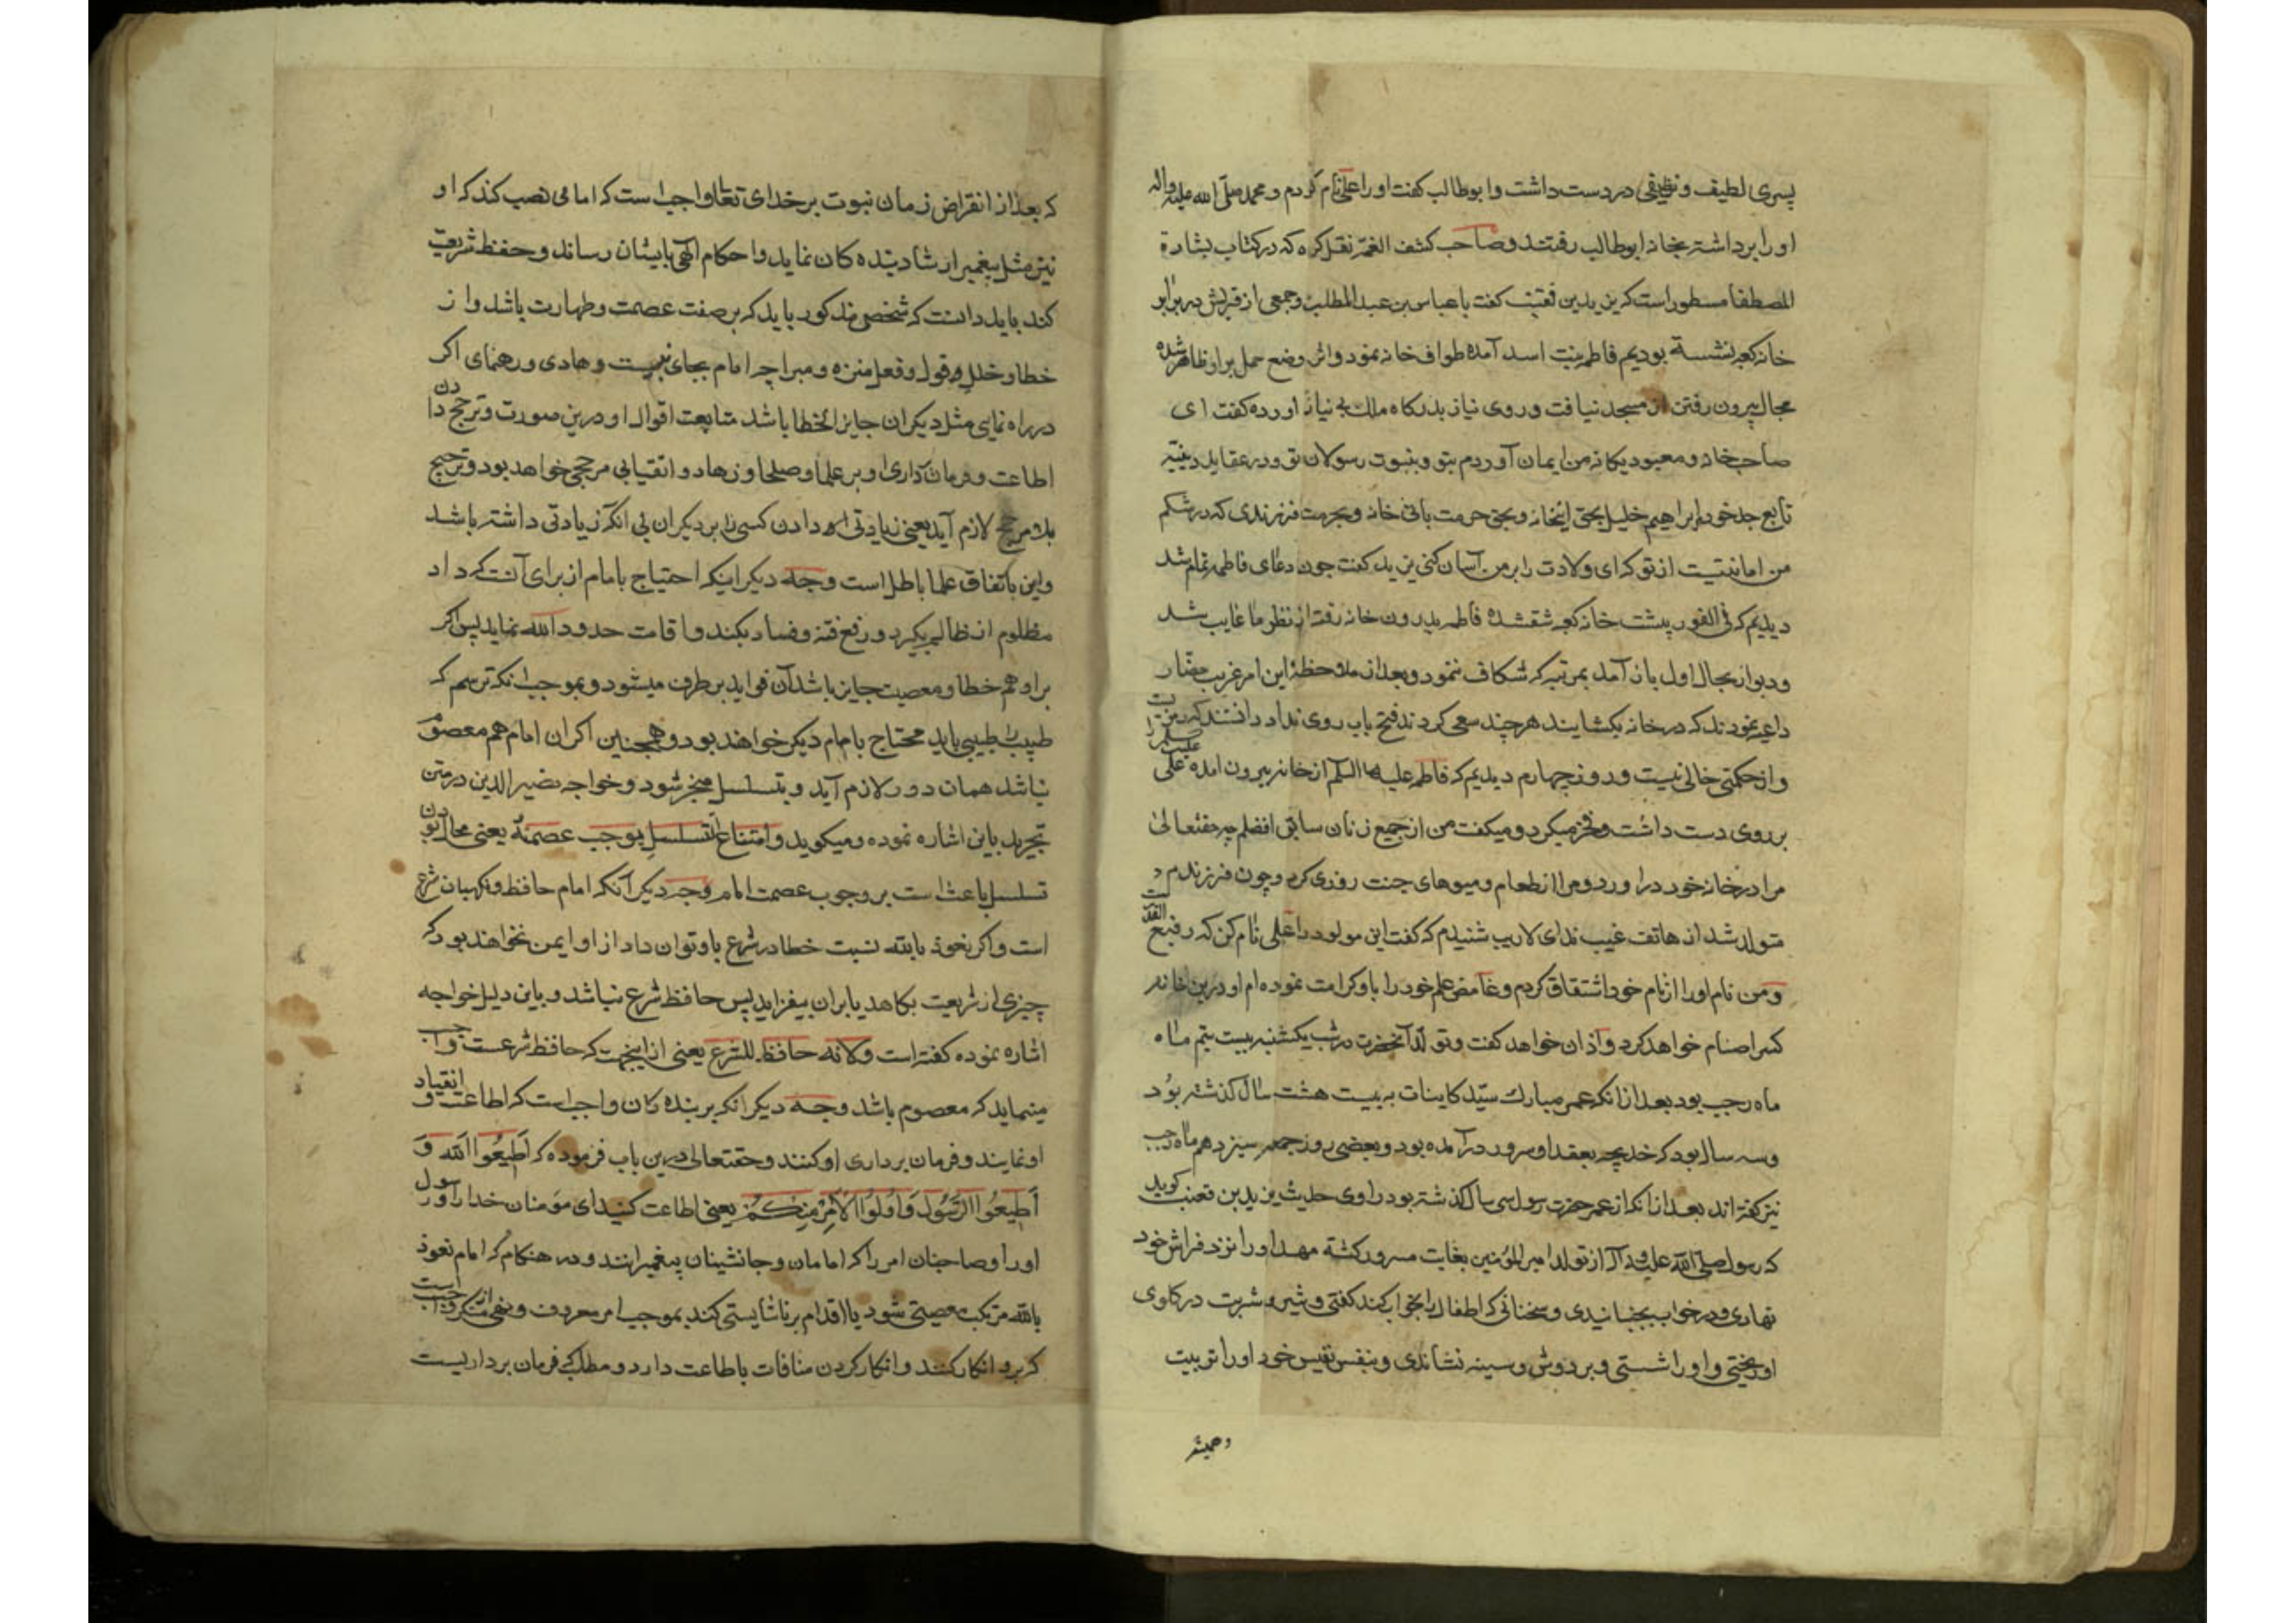 پسری لطیف و نظیفی در دست داشت و ابوطالب کفت او را علی نام کردم و محمد صلی الله علیه واله
او را برداشته بخانه ابوطالب رفتند و صاحب کشف الغمه نقل کرده که در کتاب بشارة
المصطفا مسطور است که یزید بن قعنب کفت با عباس بن عبد المطلب و جمعی از قریش در برابر
خانه کعبه نشسته بودیم فاطمه بنت اسد آمده طواف خانه نمود و اثر وضع حمل بر او ظاهر شده
مجال بیرون رفتن از مسجد نیافت و روی نیاز بدرکاه ملک بی نیاز اورده کفت ای
صاحب خانه و معبود یکانه من ایمان آوردم بتو و بنبوت رسولان تو و در عقاید دینیه
تابع جد خودم ابراهیم خلیل بحق اینخانه و بحق حرمت بانی خانه و بحرمت فرزندی که در شکم
من امانتیست از تو که ای ولادت را بر من آسان کنی یزید کفت چون دعای فاطمه تمام شد
دیدیم که فی الفور پشت خانه کعبه شق شده فاطمه بدرون خانه رفته از نظر ما غایب شد
و دیوار بحال اول باز آمد بمرتبه که شکاف ننمود و بعد از ملاحظهٔ این امر غریب حضار
داعیه نمودند که در خانه بکشایند هر چند سعی کردند فتح باب روی نداد دانستند که
و از حکمتی خالی نیست و روز چهارم دیدیم که فاطمه علیها السلم از خانه بیرون امده علی
بر روی دست داشت و فخر میکرد و میکفت من از جمیع زنان سابق افضلم چه حقتعالی
مرا در خانه خود در اورد و مرا از طعام و میوهای جنت روزی کرد و چون فرزندم
متولد شد از هاتف غیب ندای لاریب شنیدم که کفت این مولود را علی نام کن که رفیع القدر است
و من نام او را از نام خود اشتقاق کردم و غامض علم خود را باو کرامت نموده ام او درین خانه
کسر اصنام خواهد کرد و اذان خواهد کفت و تولد آنحضرت در شب یکشنبه بیست یتم ماه
ماه رجب بود بعد از انکه عمر مبارک سید کاینات به بیست هشت سال کذشته بود
و سه سال بود که خدیجه بعقد او سرور در آمده بود و بعضی روز جمعه سیزدهم ماه رجب
نیز کفته اند بعد از انکه از عمر حضرت رسول سی سال کذشته بود راوی حدیث یزید بن قعنب کوید
که رسول صلی الله علیه و آله از تولد امیر المؤمنین بغایت مسرور کشته مهد او را نزد فراش خود
نهادی و در خواب بجنبانیدی و سخنانی که اطفال را بخواب کند کفتی و شیر و شربت در کلوی
او ریختی و او را شستی و بر دوش و سینه نشاندی و بنفس نفیس خود او را تربیت
و همیشه
که بعد از انقراض زمان نبوت بر خدای تعالی واجب است که امامی نصب کند که او
نیز مثل پیغمبر ارشاد بنده کان نماید و احکام الهی بایشان رساند و حفظ شریعت
کند باید دانست که شخصی مذکور باید که بر صفت عصمت و طهارت باشد و از
خطا و خلل در قول و فعل منزه و مبرا چه امام بجای نبیست و هادی و رهنمای اکر
در راه نمایی مثل دیکران جایز الخطا باشد متابعت اقوال او درین صورت و ترجیح دادن
اطاعت و فرمان داری او بر علما و صلحا و زهاد و اتقیا بی مرجحی خواهد بود و ترجیح
بلا مرجح لازم آید یعنی زیادتی دادن کسی را بر دیکران بی انکه زیادتی داشته باشد
و این باتفاق علما باطل است وجه دیکر اینکه احتیاج بامام از برای آنست که داد
مظلوم از ظالم بکیرد و رفع فتنه و فساد بکند و اقامت حدود الله نماید پس اکر
بر او هم خطا و معصیت جایز باشد آن فواید بر طرف میشود و بموجب انکه ترسم که
طبیب را طبیبی باید محتاج بامام دیکر خواهند بود و همچنین اکر ان امام هم معصوم
نباشد همان دور لازم آید و بتسلسل منجر شود و خواجه نصیر الدین در متن
تجرید باین اشاره نموده و میکوید و امتناع التسلسل یوجب عصمته یعنی محال بودن
تسلسل باعث است بر وجوب عصمت امام وجه دیکر آنکه امام حافظ و نکهبان شرع
است و اکر نعوذ بالله نسبت خطا در شرع باو توان داد از او ایمن نخواهند بود که
چیزی از شریعت بکاهد یا بر ان بیفزاید پس حافظ شرع نباشد و باین دلیل خواجه
اشاره نموده کفته است و لانه حافظ للشرع یعنی از اینجهت که حافظ شرعست واجب
مینماید که معصوم باشد وجه دیکر انکه بر بنده کان واجب است که اطاعت و انقیاد
او نمایند و فرمان برداری او کنند و حقتعالی درین باب فرموده که اَطیعُوا الله وَ
اَطیعُوا الرَّسُولَ وَ اُولُوا الْاَمْرِ مِنْکُمْ یعنی اطاعت کنید ای مؤمنان خدا را و رسول
او را و صاحبان امر را که امامان و جانشینان پیغمبرانند و در هنکام که امام نعوذ
بالله مرتکب معصیتی شود یا اقدام بر ناشایستی کند بموجب امر معروف و نهی از منکر واجب است
که برو انکار کنند و انکار کردن منافات باطاعت دارد و مطلب که فرمان برداریست